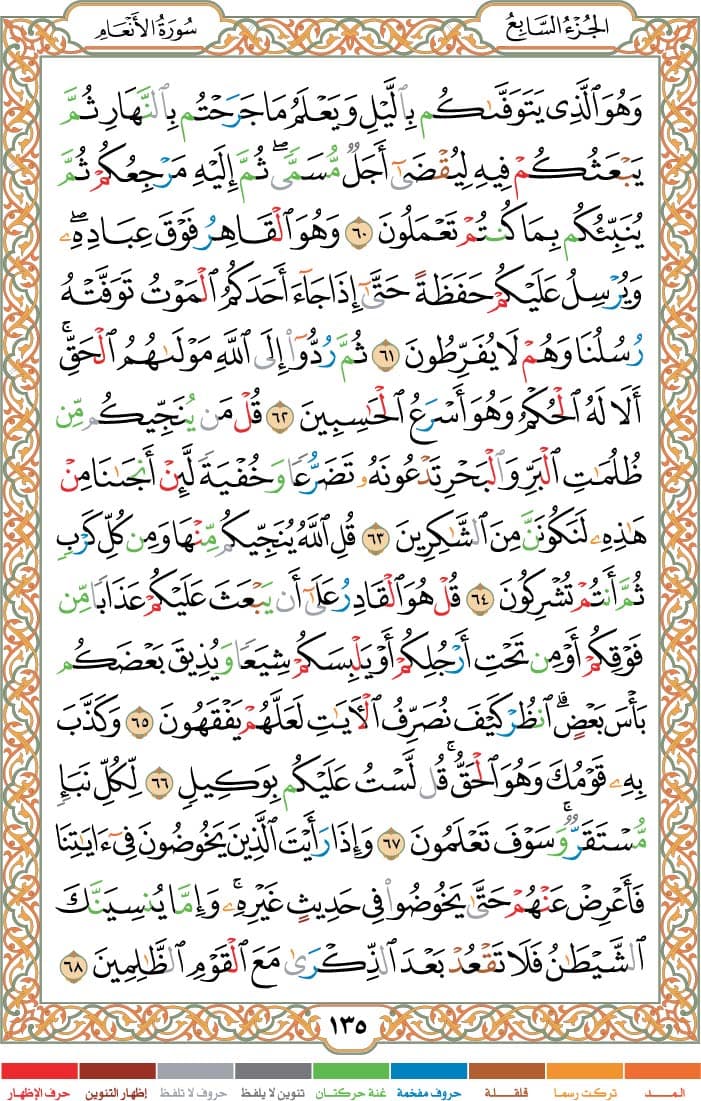 الجُزْءُ السَّابِعُ
سُورَةُ الأَنْعَامِ
وَهُوَ ٱلَّذِى يَتَوَفَّىٰكُم بِٱلَّيْلِ وَيَعْلَمُ مَا جَرَحْتُم بِٱلنَّهَارِ ثُمَّ
يَبْعَثُكُمْ فِيهِ لِيُقْضَىٰٓ أَجَلٌ مُّسَمًّى ۖ ثُمَّ إِلَيْهِ مَرْجِعُكُمْ ثُمَّ
يُنَبِّئُكُم بِمَا كُنتُمْ تَعْمَلُونَ ٦٠ وَهُوَ ٱلْقَاهِرُ فَوْقَ عِبَادِهِۦ ۖ
وَيُرْسِلُ عَلَيْكُمْ حَفَظَةً حَتَّىٰٓ إِذَا جَآءَ أَحَدَكُمُ ٱلْمَوْتُ تَوَفَّتْهُ
رُسُلُنَا وَهُمْ لَا يُفَرِّطُونَ ٦١ ثُمَّ رُدُّوٓا۟ إِلَى ٱللَّهِ مَوْلَىٰهُمُ ٱلْحَقِّ ۚ
أَلَا لَهُ ٱلْحُكْمُ وَهُوَ أَسْرَعُ ٱلْحَٰسِبِينَ ٦٢ قُلْ مَن يُنَجِّيكُم مِّن
ظُلُمَٰتِ ٱلْبَرِّ وَٱلْبَحْرِ تَدْعُونَهُۥ تَضَرُّعًا وَخُفْيَةً لَّئِنْ أَنجَىٰنَا مِنْ
هَٰذِهِۦ لَنَكُونَنَّ مِنَ ٱلشَّٰكِرِينَ ٦٣ قُلِ ٱللَّهُ يُنَجِّيكُم مِّنْهَا وَمِن كُلِّ كَرْبٍ
ثُمَّ أَنتُمْ تُشْرِكُونَ ٦٤ قُلْ هُوَ ٱلْقَادِرُ عَلَىٰٓ أَن يَبْعَثَ عَلَيْكُمْ عَذَابًا مِّن
فَوْقِكُمْ أَوْ مِن تَحْتِ أَرْجُلِكُمْ أَوْ يَلْبِسَكُمْ شِيَعًا وَيُذِيقَ بَعْضَكُم
بَأْسَ بَعْضٍ ۗ ٱنظُرْ كَيْفَ نُصَرِّفُ ٱلْءَايَٰتِ لَعَلَّهُمْ يَفْقَهُونَ ٦٥ وَكَذَّبَ
بِهِۦ قَوْمُكَ وَهُوَ ٱلْحَقُّ ۚ قُل لَّسْتُ عَلَيْكُم بِوَكِيلٍ ٦٦ لِّكُلِّ نَبَإٍ
مُّسْتَقَرٌّ ۚ وَسَوْفَ تَعْلَمُونَ ٦٧ وَإِذَا رَأَيْتَ ٱلَّذِينَ يَخُوضُونَ فِىٓ ءَايَٰتِنَا
فَأَعْرِضْ عَنْهُمْ حَتَّىٰ يَخُوضُوا۟ فِى حَدِيثٍ غَيْرِهِۦ ۚ وَإِمَّا يُنسِيَنَّكَ
ٱلشَّيْطَٰنُ فَلَا تَقْعُدْ بَعْدَ ٱلذِّكْرَىٰ مَعَ ٱلْقَوْمِ ٱلظَّٰلِمِينَ ٦٨
١٣٥
المــــد تركت رسما قلقــلة حروف مفخمة غنة حركتان تنوين لا يلفظ حروف لا تلفظ إظهار التنوين حرف الإظهار